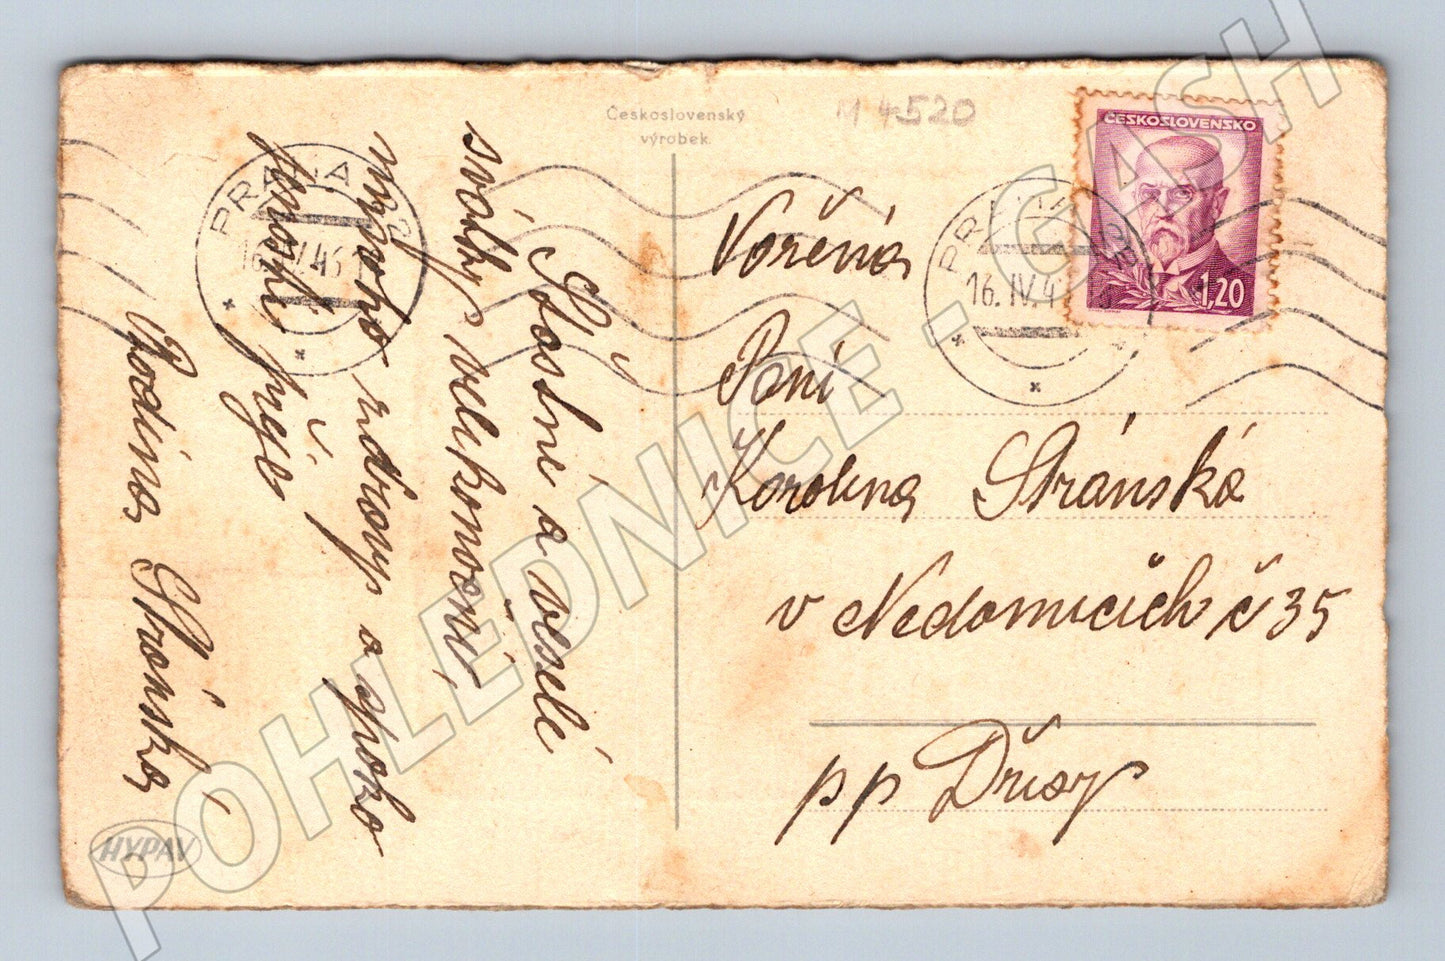 Československý
výrobek.
M 4520
ČESKOSLOVENSKO
1,20
PRAHA 22
16.IV.46
PRAHA 22
16.IV.4
Šťastné a veselé
svátky velikonoční
mnoho zdraví a spoko
přeje
Rodina Stránská
Vážená
Paní
Karolina Stránská
v Nedomicích č 35
pp Dřísy
HYPAV
POHLEDNICE - GASH